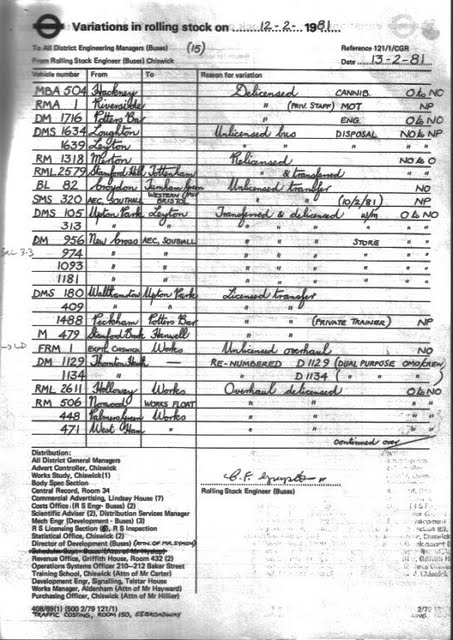 Variations in rolling stock on 12-2- 1981
To All District Engineering Managers (Buses) (15) Reference 121/1/CGR
From Rolling Stock Engineer (Buses) Chiswick Date 13-2-81
Vehicle number From To Reason for variation
MBA 504 Hackney Delicensed CANNIB. O to NO
RMA 1 Riverside " (PRIV. STAFF) MOT NP
DM 1716 Potters Bar " ENG. O to NO
DMS 1634 Loughton Unlicensed bus DISPOSAL NO to NP
1639 Leyton " " " " "
RM 1318 Merton Relicensed NO to O
RML 2579 Stamford Hill Tottenham " & transferred " "
BL 82 Croydon Turnham Green Unlicensed transfer NO
SMS 320 AEC, SOUTHALL WESTERN BRISTOL " " (10/2/81) NP
DMS 105 Upton Park Leyton Transferred & delicensed w/m O to NO
313 " " " " " " "
DM 956 New Cross AEC, SOUTHALL " " STORE " "
Sec 3.3 974 " " " " " " "
1093 " " " " " " "
1181 " " " " " " "
DMS 180 Walthamstow Upton Park Licensed transfer
409 " " " "
1488 Peckham Potters Bar " " (PRIVATE TRAINER) NP
M 479 Stamford Brook Hanwell " "
FRM 1 Works Unlicensed overhaul NO
DM 1129 Thornton Heath — RE-NUMBERED D1129 (DUAL PURPOSE OMO/CREW)
1134 " " D1134 ( " " " )
RML 2611 Holloway Works Overhaul delicensed O to NO
RM 506 Norwood WORKS FLOAT " " " "
448 Palmers Green Works " " " "
471 West Ham " " " " "
continued over
Distribution:
All District General Managers
Advert Controller, Chiswick
Works Study, Chiswick (1)
Body Spec Section
Central Record, Room 34
Commercial Advertising, Lindsay House (7)
Costs Office (R S Eng- Buses) (2)
Scientific Adviser (2), Distribution Services Manager
Mech Engr (Development - Buses) (3)
R S Licensing Section, R S Inspection
Statistical Office, Chiswick (2)
Director of Development (Buses)
Revenue Office, Griffith House, Room 432 (2)
Operations Systems Officer 210-212 Baker Street
Training School, Chiswick (Attn of Mr Carter)
Development Engr, Signalling, Telstar House
Works Manager, Aldenham (Attn of Mr Hayward)
Purchasing Officer, Chiswick (Attn of Mr Hillier)
Rolling Stock Engineer (Buses)
408/69(1) (500 2/79 121/1)
TRAFFIC COSTING, ROOM 150, 55 BROADWAY